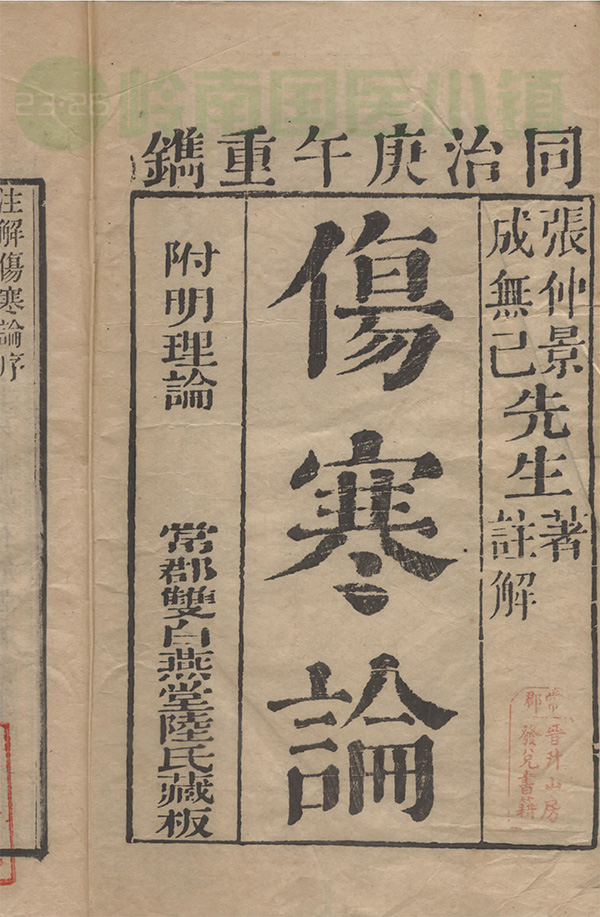 23·26 岭南国医小镇
同治庚午重鐫
張仲景
成無己
先生
著
註解
傷寒論
附明理論
常郡雙白燕堂陸氏藏板
常郡
晋升山房
發兌書籍
注解傷寒論序